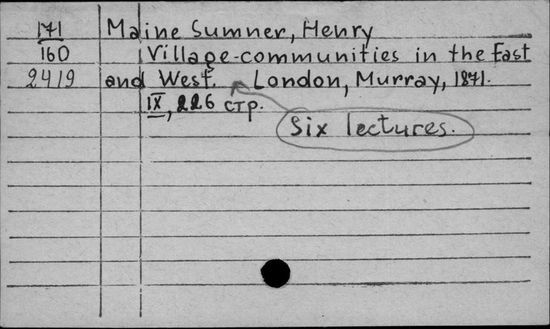 171 Maine Sumner, Henry
160 Village-communities in the East
2419 and West. London, Murray, 1871.
IX, 226 стр.
Six lectures.